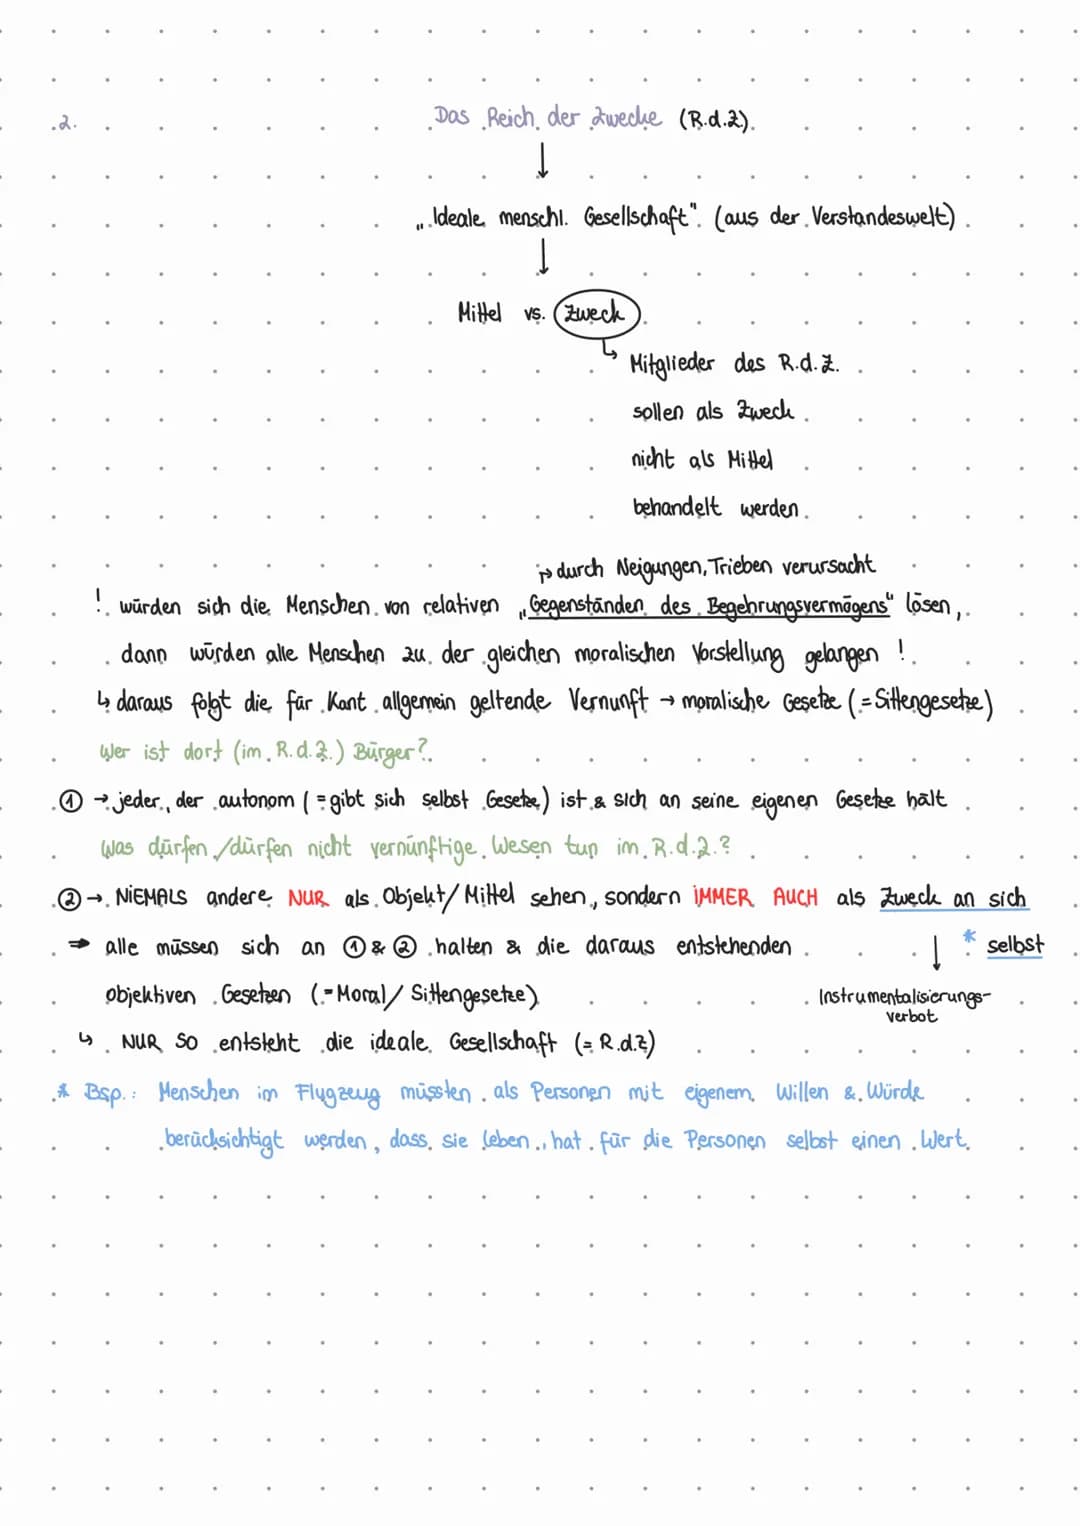 2. Das Reich der Zwecke (R.d.Z.)
↓
„Ideale menschl. Gesellschaft" (aus der Verstandeswelt)
↓
Mittel vs. Zweck
↳ Mitglieder des R.d.Z.
sollen als Zweck
nicht als Mittel
behandelt werden
↱ durch Neigungen, Trieben verursacht
! würden sich die Menschen von relativen „Gegenständen des Begehrungsvermögens" lösen,
dann würden alle Menschen zu der gleichen moralischen Vorstellung gelangen !
↳ daraus folgt die für Kant allgemein geltende Vernunft → moralische Gesetze (=Sittengesetze)
Wer ist dort (im R.d.Z.) Bürger?
① → jeder, der autonom (=gibt sich selbst Gesetze) ist & sich an seine eigenen Gesetze hält
Was dürfen/dürfen nicht vernünftige Wesen tun im R.d.Z.?
② → NIEMALS andere NUR als Objekt/Mittel sehen, sondern IMMER AUCH als Zweck an sich
⇒ alle müssen sich an ① & ② halten & die daraus entstehenden ↓ * selbst
objektiven Gesetzen (=Moral/Sittengesetze) Instrumentalisierungs-
verbot
↳ NUR SO entsteht die ideale Gesellschaft (= R.d.Z)
* Bsp.: Menschen im Flugzeug müssten als Personen mit eigenem Willen & Würde
berücksichtigt werden, dass sie leben, hat für die Personen selbst einen Wert.